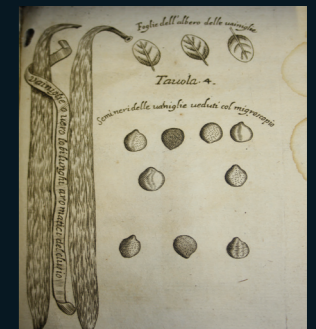 Foglie dell'albero delle uainiglie
Tauola. 4.
Semi neri delle uainiglie ueduti col migroscopio
Vainiglie o uero lobi lunghi aromatici del